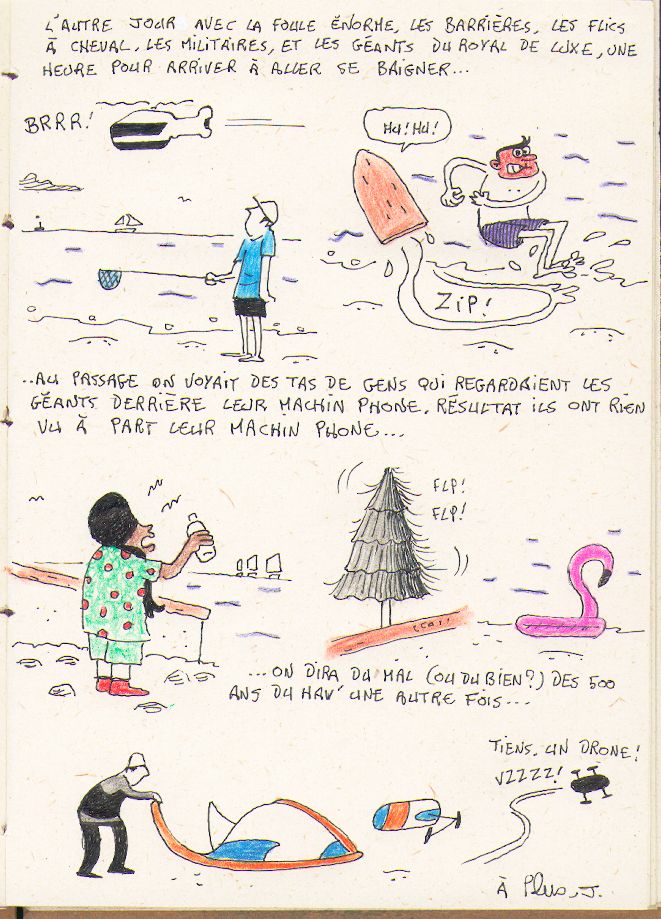 L'AUTRE JOUR AVEC LA FOULE ÉNORME, LES BARRIÈRES, LES FLICS
À CHEVAL, LES MILITAIRES, ET LES GÉANTS DU ROYAL DE LUXE, UNE
HEURE POUR ARRIVER À ALLER SE BAIGNER...
BRRR!
HU! HU!
ZIP!
..AU PASSAGE ON VOYAIT DES TAS DE GENS QUI REGARDAIENT LES
GÉANTS DERRIÈRE LEUR MACHIN PHONE. RÉSULTAT ILS ONT RIEN
VU À PART LEUR MACHIN PHONE...
FLP!
FLP!
...ON DIRA DU MAL (OU DU BIEN?) DES 500
ANS DU HAV' UNE AUTRE FOIS...
TIENS. UN DRONE!
VZZZZ!
À Plus, J.